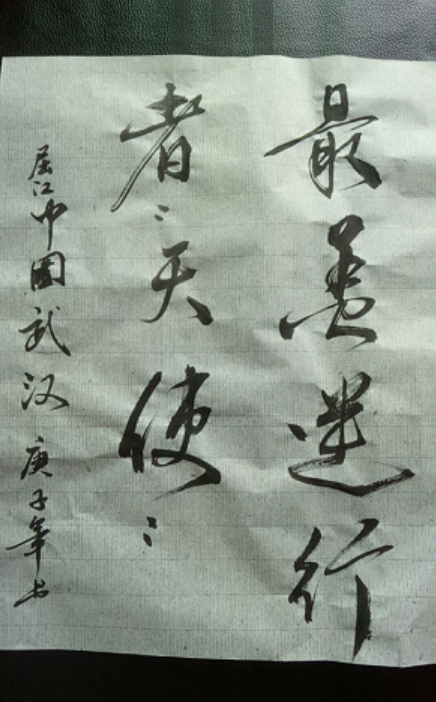 最美逆行
者：天使：
江中國武汉庚子年书